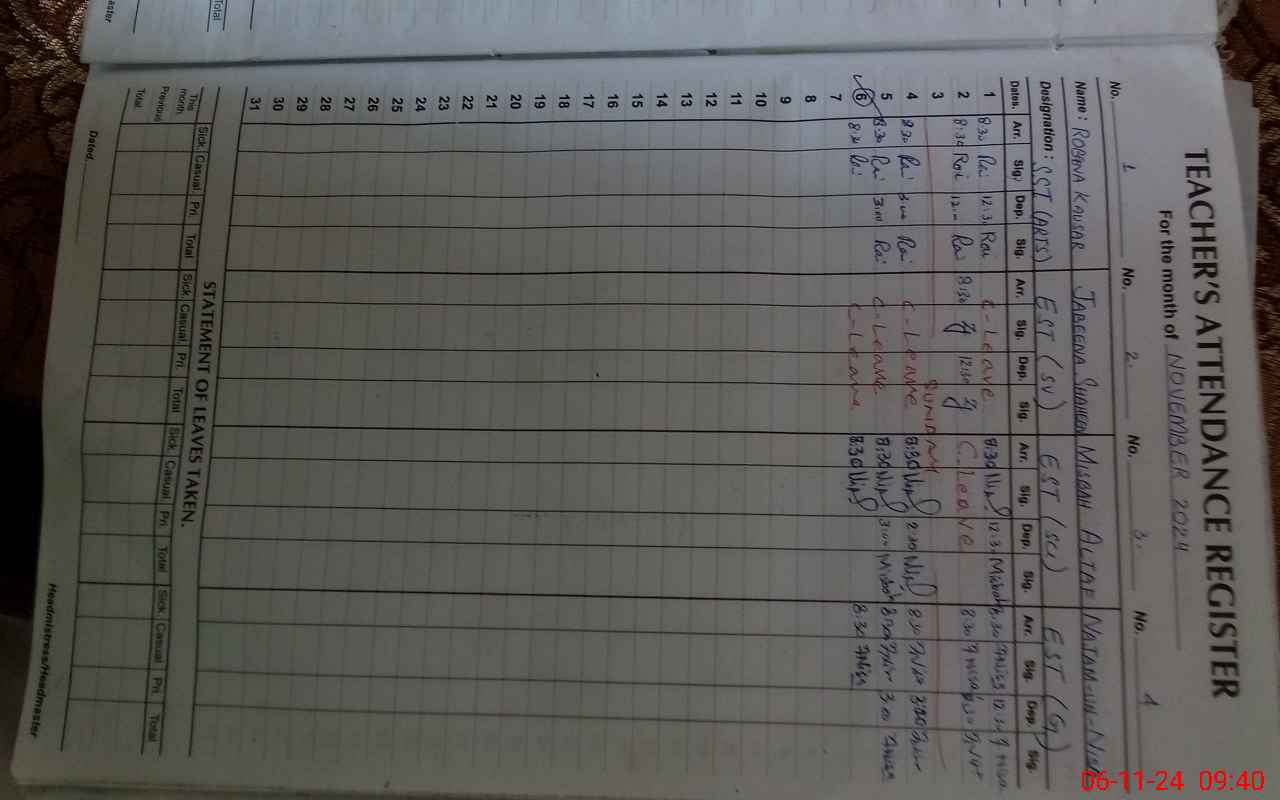 TEACHER'S ATTENDANCE REGISTER
For the month of NOVEMBER 2024
No. 1 No. 2. No. 3. No. 4
Name: ROBINA KAUSAR JABEENA SHAHEEN MISBAH ALTAF
Designation: SST (ARTS) EST (SV) EST (SCI) EST (G)
Dates. Arr. Sig. Dep. Sig. Arr. Sig. Dep. Sig. Arr. Sig. Dep. Sig. Arr. Sig. Dep. Sig.
1 8:30 12:30 C-Leave 8:30 12:30 Misbah 8:30 12:30
2 8:30 8:30 12:30 C.Leave 8:30
3 SUNDAY
4 8:30 3:00 C-Leave 8:30 2:30 8:30 3:00
5 8:30 3:00 C-Leave 8:30 3:00 Misbah 8:30 3:00
6 C-Leave 8:30 8:30
7
8
9
10
11
12
13
14
15
16
17
18
19
20
21
22
23
24
25
26
27
28
29
30
31
STATEMENT OF LEAVES TAKEN.
Sick Casual Pri. Total Sick Casual Pri Total Sick Casual Pri Total Sick Casual Pri Total
This month
Previous
Total
Dated. Headmistress/Headmaster
Total
06-11-24 09:40